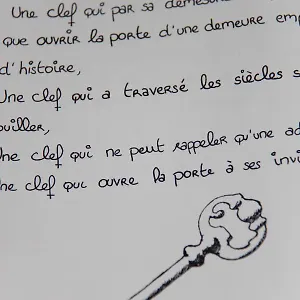 Une clef qui par sa
que ouvrir la porte d'une demeure
d'histoire,
Une clef qui a traversé les siècles
clef qui ne peut rappeler qu'une
clef que ouvre la porte à ses